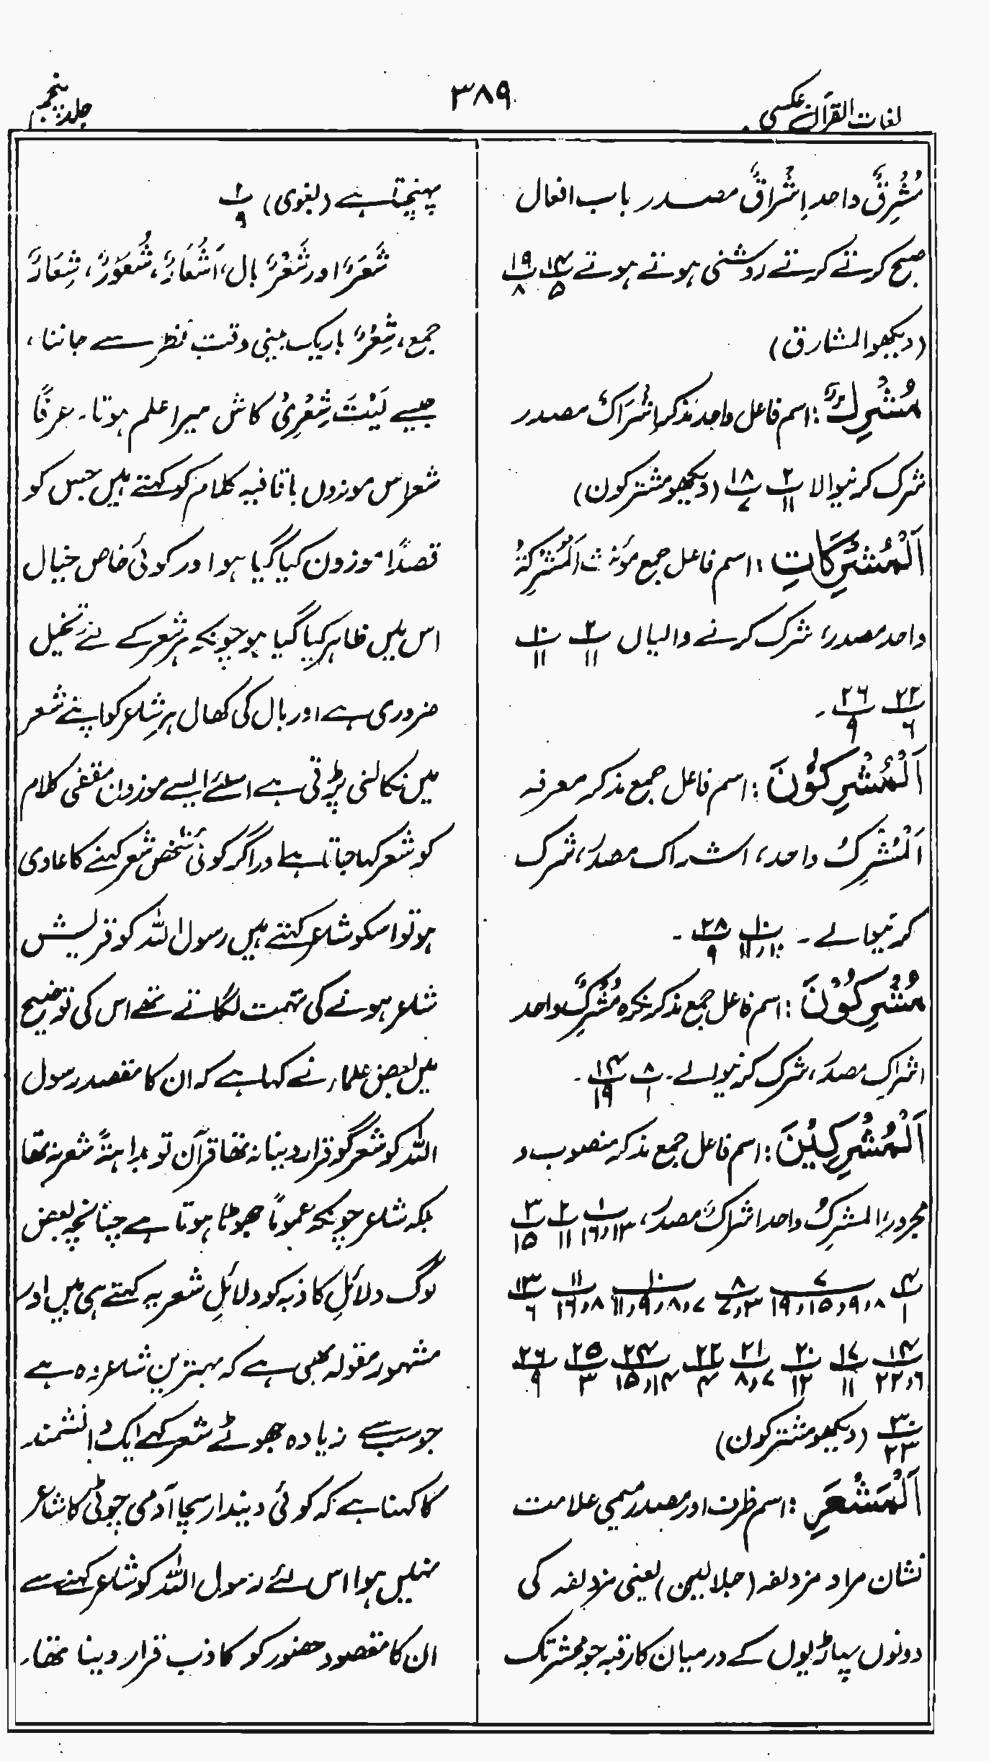 لغات القرآن عکسی
۳۸۹
جلد پنجم
مُشْرِقٌ واحد اِشْرَاقٌ مصدر باب افعال
صبح کرتے کرتے روشنی ہوتے ہوتے ۱۴/۵ ۱۹/۸
(دیکھو المشارق)
مُشْرِكٌ: اسم فاعل واحد مذکر اِشْرَاكٌ مصدر
شرک کرنیوالا ۲/۱۱ ۱۸/۷ (دیکھو مشترکون)
اَلْمُشْرِكَاتِ: اسم فاعل جمع مؤنث اَلْمُشْرِكَةُ
واحد مصدر، شرک کرنے والیاں ۲/۱۱ ۱۰/۱۱
۲۲/۶ ۲۶/۹ ۔
اَلْمُشْرِكُوْنَ: اسم فاعل جمع مذکر معرفہ
اَلْمُشْرِكُ واحد، اشراک مصدر، شرک
کرنیوالے ۔ ۱۰/۱۰،۱۱ ۲۸/۹ ۔
مُشْرِكُوْنَ: اسم فاعل جمع مذکر نکرہ مُشْرِكٌ واحد
اشراک مصدر، شرک کرنیوالے۔ ۸/۱ ۱۴/۱۹ ۔
اَلْمُشْرِكِيْنَ: اسم فاعل جمع مذکر منصوب و
مجرور، المشرکُ واحد اشراكٌ مصدر، ۱/۱۳،۱۶ ۲/۱۱ ۳/۱۵
۴/۱ ۷/۸،۹،۱۵،۱۹ ۸/۳،۷ ۱۰/۷،۸،۹،۱۱ ۱۱/۸،۱۶ ۱۳/۶
۱۴/۶،۲۲ ۱۷/۱۱ ۲۰/۱۲ ۲۱/۷،۸ ۲۲/۴ ۲۴/۱۴،۱۵ ۲۵/۳ ۲۶/۹
۳۰/۲۳ (دیکھو مشترکون)
اَلْمَشْعَرِ: اسم ظرف اور مصدر میمی علامت
نشان مراد مزدلفہ (جلالیین) یعنی مزدلفہ کی
دونوں پہاڑیوں کے درمیان کا رقبہ جو محشر تک
پہنچتا ہے (بغوی) ۲/۹
شَعَرٌ اور شَعْرٌ بال، اَشْعَارٌ، شُعُوْرٌ، شِعَارٌ
جمع، شِعْرٌ باریک بینی دقت نظر سے جاننا،
جیسے لَيْتَ شِعْرِيْ کاش میرا علم ہوتا۔ عرفًا
شعر اس موزوں باقافیہ کلام کو کہتے ہیں جس کو
قصدًا موزون کیا گیا ہو اور کوئی خاص خیال
اس میں ظاہر کیا گیا ہو چونکہ ہر شعر کے لئے تخیل
ضروری ہے اور بال کی کھال ہر شاعر کو اپنے شعر
میں نکالنی پڑتی ہے اسلئے ایسے موزون مقفی کلام
کو شعر کہا جاتا ہے اور اگر کوئی شخص شعر کہنے کا عادی
ہو تو اسکو شاعر کہتے ہیں رسول اللہ کو قریش
شاعر ہونے کی تہمت لگاتے تھے اس کی توضیح
میں بعض علماء نے کہا ہے کہ ان کا مقصد رسول
اللہ کو شعر گو قرار دینا نہ تھا قرآن تو بداہتہً شعر نہ تھا
بلکہ شاعر چونکہ عموماً جھوٹا ہوتا ہے چنانچہ بعض
لوگ دلائلِ کاذبہ کو دلائلِ شعریہ کہتے ہی ہیں اور
مشہور مقولہ بھی ہے کہ بہترین شاعر وہ ہے
جو سب سے زیادہ جھوٹے شعر کہے ایک دانشمند
کا کہنا ہے کہ کوئی دیندار سچا آدمی چوٹی کا شاعر
نہیں ہوا اس لئے رسول اللہ کو شاعر کہنے سے
ان کا مقصود حضور کو کاذب قرار دینا تھا۔